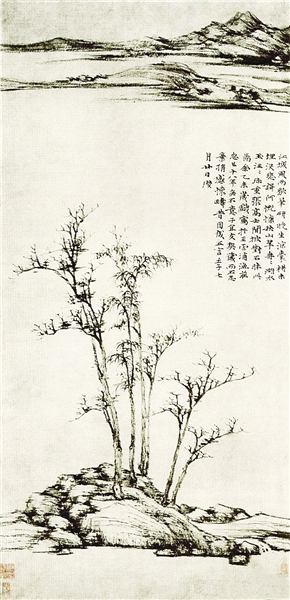 江城風雨歇筆研晚生涼囊楮未
埋沒悲謌何慨慷秋山翠冉冉湖水
玉汪汪珍重張高士閒披對石牀此圖
余乙未歲戲寫於王雲浦漁莊
忽已十八年矣不意子宜友契藏而不忍
棄捐感懷疇昔因成五言壬子七
月廿日瓚